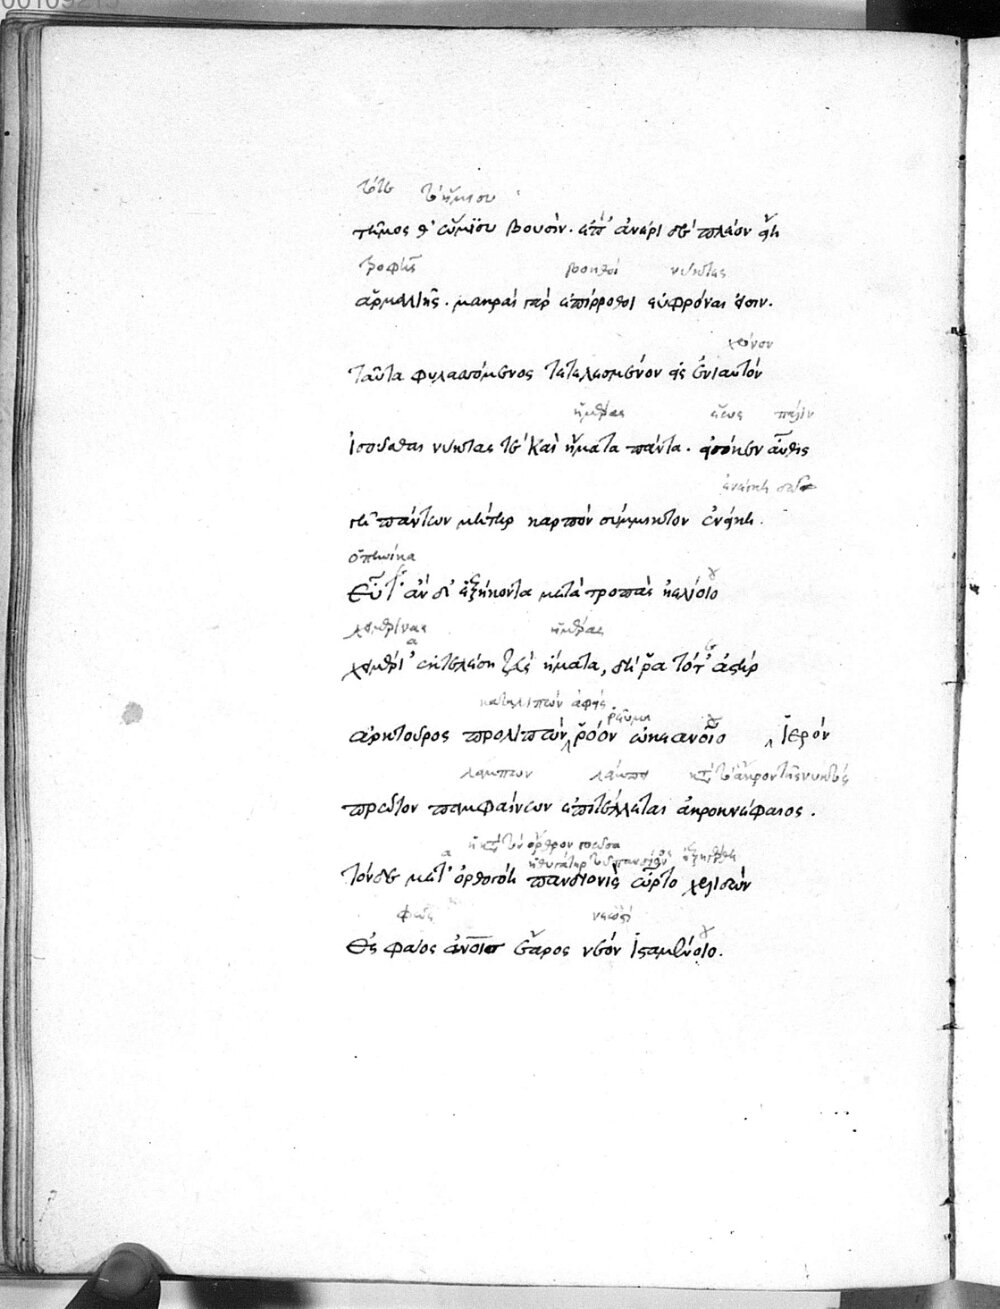 τότε τὸ ἥμισυ
τῆμος θ' ὥμισυ βουσὶν. ἐπ' ἀνέρι δὲ πλέον εἴη
τροφῆς βοηθοὶ νύκτες
ἁρμαλιῆς. μακραὶ γὰρ ἐπίρροθοι εὐφρόναι εἰσιν.
χρόνον
ταῦτα φυλασσόμενος τετελεσμένον εἰς ἐνιαυτόν
ἡμέρας ἕως πάλιν
ἰσοῦσθαι νύκτας τὲ καὶ ἤματα πάντα. εἰσόκεν αὖθις
γῆ πάντων μήτηρ καρπὸν σύμμικτον ἐνείκη.
ὁπηνίκα
Εὖτ' ἂν δ' ἑξήκοντα μετὰ τροπὰς ἠελίοιο
χειμερίνας ἡμέρας
χειμέρι' ἐκτελέση ζεὺς ἤματα, δή ῥα τότ' ἀστὴρ
καταλιπὼν ἀφεὶς ῥεῦμα
ἀρκτοῦρος προλιπὼν ῥόον ὠκεανοῖο ἱερὸν
λάμπων λάμπει τὸ ἄκρον τῆς νυκτός
πρῶτον παμφαίνων ἐπιτέλλεται ἀκροκνέφαιος.
ὄρθρον γοῶσα ἡ θυγάτηρ τοῦ πανδίονος
τὸν δὲ μετ' ὀρθογόη πανδιονὶς ὦρτο χελιδὼν
φῶς νεωστὶ
Ἐς φάος ἀνθρώποις ἔαρος νέον ἱσταμένοιο.